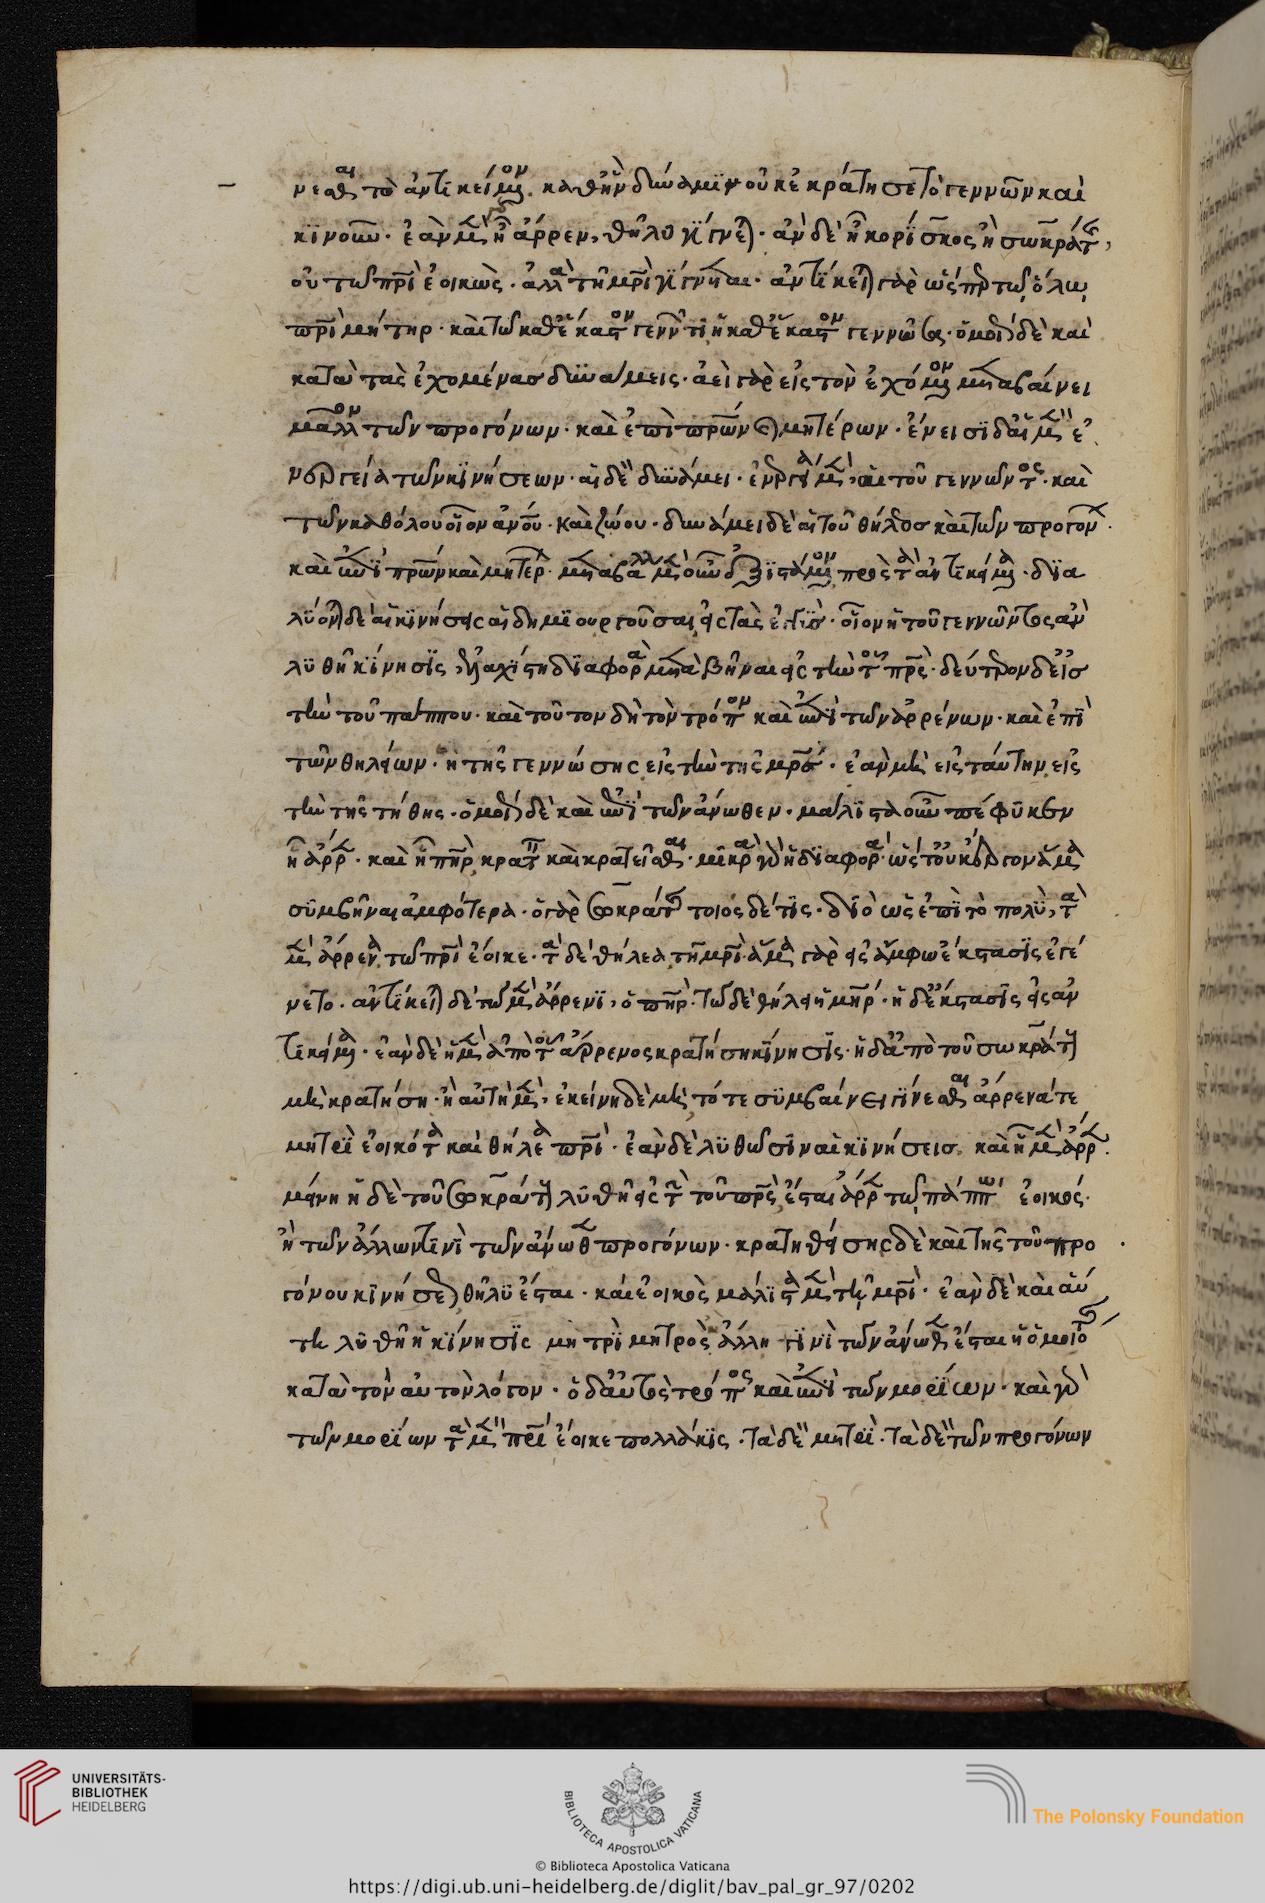 νεσθαι τὸ ἀντικείμενον καθ' ἣν δύναμιν οὐκ ἐκράτησε τὸ γεννῶν καὶ
κινοῦν· ἐὰν μὲν ᾖ ἄρρεν, θῆλυ γίγνεται· ἂν δὲ ᾖ κορίσκος ἢ σωκράτης,
οὐ τῷ πατρὶ ἐοικὼς· ἀλλὰ τῇ μητρὶ γίγνεται· ἀντίκειται γὰρ ὥσπερ τῷ ὅλως
πατρὶ μήτηρ· καὶ τῷ καθ' ἕκαστον γεννῶντι ἡ καθ' ἕκαστον γεννῶσα· ὁμοίως δὲ καὶ
κατὰ τὰς ἐχομένας δυνάμεις· ἀεὶ γὰρ εἰς τὸν ἐχόμενον μεταβαίνει
μᾶλλον τῶν προγόνων· καὶ ἐπὶ πατρῶν καὶ μητέρων· ἔνεισι δ' αἱ μὲν ἐ
νεργείᾳ τῶν κινήσεων· αἱ δὲ δυνάμει· ἐνεργείᾳ μὲν, αἱ τοῦ γεννῶντος· καὶ
τῶν καθόλου οἷον ἀνθρώπου· καὶ ζώου· δυνάμει δὲ αἱ τοῦ θήλεος καὶ τῶν προγόνων·
καὶ ἐπὶ πατρῶν καὶ μητέρων· μεταβάλλει μὲν οὖν ἐξιστάμενον πρὸς τὰ ἀντικείμενα· δια
λύονται δὲ αἱ κινήσεις αἱ δημιουργοῦσαι εἰς τὰς ἐγγύς· οἷον ἡ τοῦ γεννῶντος ἂν
λυθῇ κίνησις, ἐλαχίστῃ διαφορᾷ μεταβῆναι εἰς τὴν τοῦ πατρὸς· δεύτερον δ' εἰς
τὴν τοῦ πάππου· καὶ τοῦτον δὴ τὸν τρόπον καὶ ἐπὶ τῶν ἀρρένων· καὶ ἐπὶ
τῶν θηλειῶν· ἡ τῆς γεννώσης εἰς τὴν τῆς μητρός· ἐὰν μὴ εἰς ταύτην εἰς
τὴν τῆς τήθης· ὁμοίως δὲ καὶ ἐπὶ τῶν ἄνωθεν· μάλιστα οὖν πέφυκεν
ᾗ ἄρρεν· καὶ ᾗ πατὴρ κρατεῖν καὶ κρατεῖσθαι· μικρὰ γὰρ ἡ διαφορά· ὥστ' οὐκ ἔργον ἅμα
συμβῆναι ἀμφότερα· ὁ γὰρ σωκράτης τοιός δέ τις· διὸ ὡς ἐπὶ τὸ πολὺ, τὰ
μὲν ἄρρενα τῷ πατρὶ ἔοικε· τὰ δὲ θήλεα τῇ μητρὶ· ἅμα γὰρ εἰς ἄμφω ἔκστασις ἐγέ
νετο· ἀντίκειται δὲ τῷ μὲν ἄρρενι, ὁ πατήρ· τῷ δὲ θήλει ἡ μήτηρ· ἡ δ' ἔκστασις εἰς ἀν
τικείμενα· ἐὰν δὲ ἡ μὲν ἀπὸ τοῦ ἄρρενος κρατήσῃ κίνησις· ἡ δ' ἀπὸ τοῦ σωκράτους
μὴ κρατήσῃ· ἢ αὕτη μὲν, ἐκείνη δὲ μὴ, τότε συμβαίνει γίνεσθαι ἄρρενά τε
μητρὶ ἐοικότα καὶ θήλεα πατρὶ· ἐὰν δὲ λυθῶσιν αἱ κινήσεις, καὶ ᾗ μὲν ἄρρεν
μείνῃ ἡ δὲ τοῦ σωκράτους λυθῇ εἰς τὴν τοῦ πατρὸς, ἔσται ἄρρεν τῷ πάππῳ ἐοικός·
ἢ τῶν ἄλλων τινὶ τῶν ἄνωθεν προγόνων· κρατηθείσης δὲ καὶ τῆς τοῦ προ
γόνου κινήσεως θῆλυ ἔσται· καὶ ἐοικὸς μάλιστα μὲν τῇ μητρὶ· ἐὰν δὲ καὶ αὕ
τη λυθῇ ἡ κίνησις μητρὶ μητρὸς ἢ ἄλλῃ τινὶ τῶν ἄνωθεν ἔσται ἡ ὁμοιότης
κατὰ τὸν αὐτὸν λόγον· ὁ δ' αὐτὸς τρόπος καὶ ἐπὶ τῶν μορίων· καὶ γὰρ
τῶν μορίων τὰ μὲν πατρὶ ἔοικε πολλάκις· τὰ δὲ μητρὶ· τὰ δὲ τῶν προγόνων
UNIVERSITÄTS-
BIBLIOTHEK
HEIDELBERG
BIBLIOTECA APOSTOLICA VATICANA
The Polonsky Foundation
© Biblioteca Apostolica Vaticana
https://digi.ub.uni-heidelberg.de/diglit/bav_pal_gr_97/0202